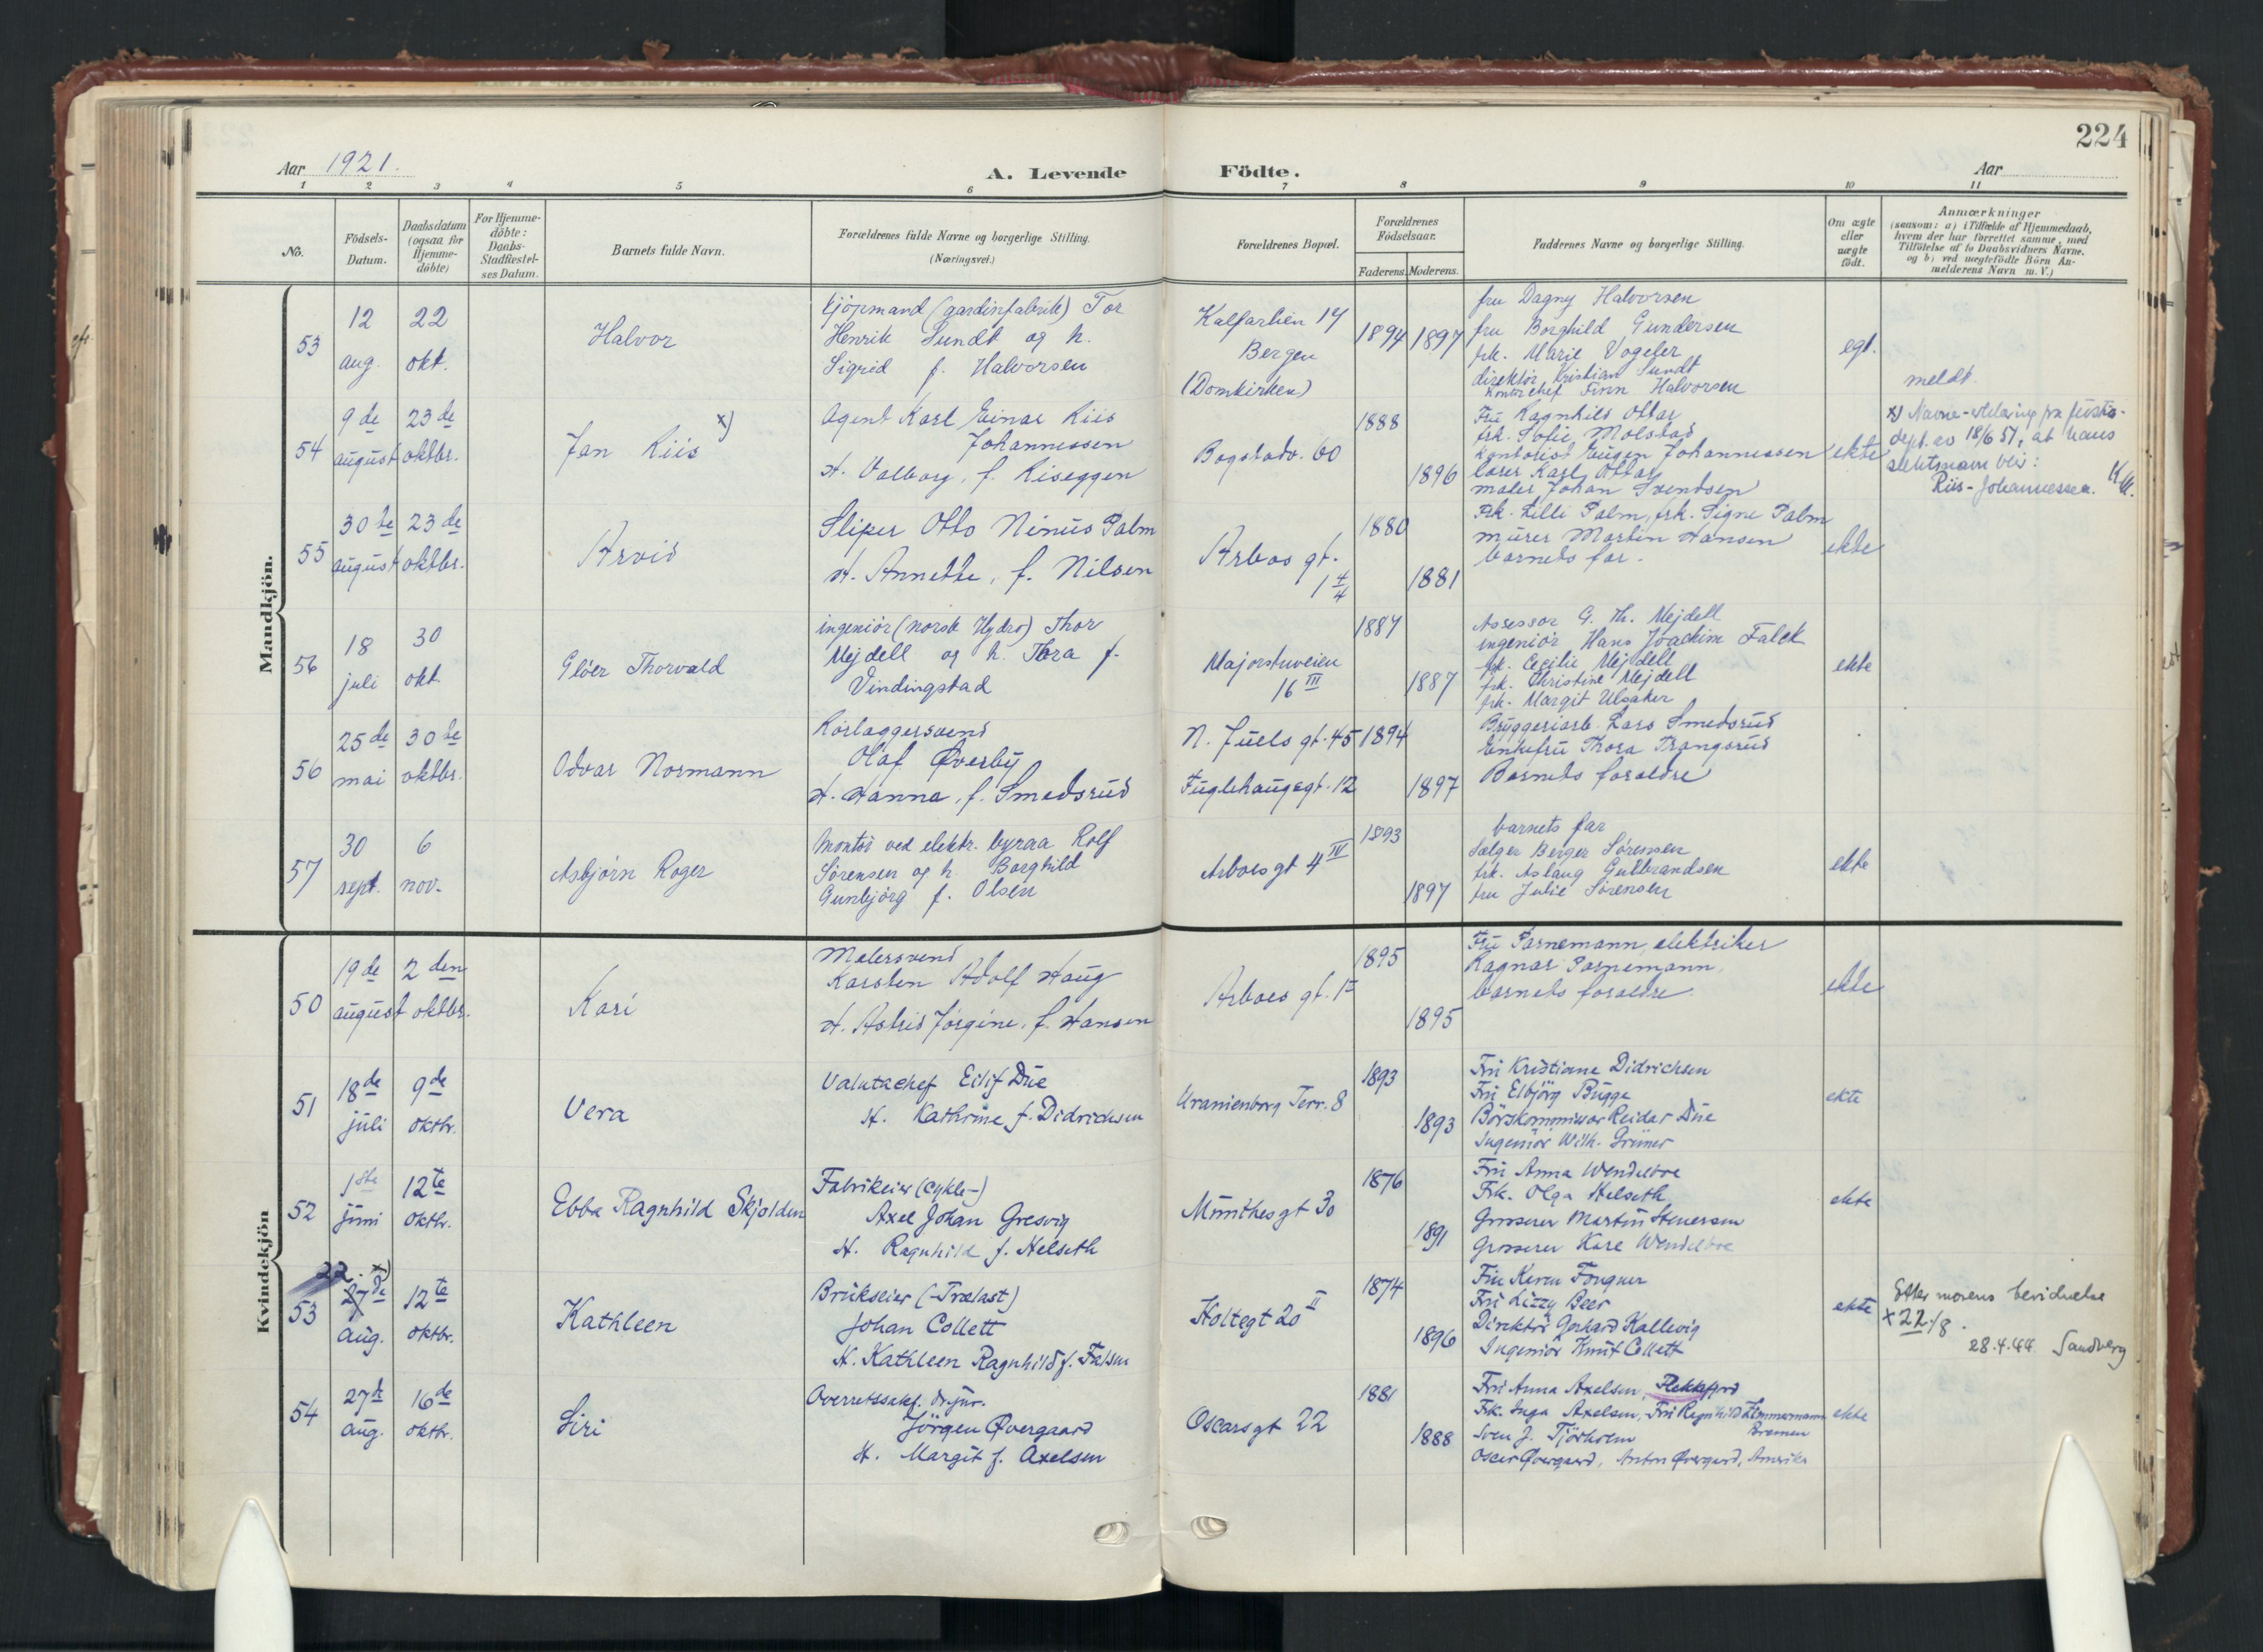 224
Aar 1921.
A. Levende Födte.
Aar
1 2 3 4 5 6 7 8 9 10 11
No.
Födsels-Datum.
Daabsdatum (ogsaa for Hjemme-döbte)
For Hjemme-döbte: Daabs-Stadfæstel-ses Datum.
Barnets fulde Navn.
Forældrenes fulde Navne og borgerlige Stilling.
(Næringsvei.)
Forældrenes Bopæl.
Forældrenes Födselsaar.
Faderens. Moderens.
Faddernes Navne og borgerlige Stilling.
Om ægte eller uægte födt.
Anmærkninger
(saasom: a) i Tilfælde af Hjemmedaab,
hvem der har forrettet samme, med
Tilföielse af to Daabsvidners Navne,
og b) ved uægtefödte Börn An-
melderens Navn m. V.)
Mandkjön.
53
12 aug.
22 okt.
Halvor
kjöpmand (gardinfabrik) Tor
Henrik Sundt og h.
Sigrid f. Halvorsen
Kalfarlien 14
Bergen
(Domkirken)
1894 1897
fru Dagny Halvorsen
fru Borghild Gundersen
frk. Marie Vogeler
direktör Kristian Sundt
Kontorchef Finn Halvorsen
egt.
meldt.
54
9de august
23de oktbr.
Jan Riis x)
Agent Karl Einar Riis
Johannessen
H. Valborg, f. Riseggen
Bogstadv. 60
1888
1896
Fru Ragnhild Ottar
frk. Sofie Molstad
Kontorist Eugen Johannessen
Karl Ottar
maler Johan Svendsen
ekte
x) Navne-
dept. av 18/6 51, at hans
slektsnavn blir:
Riis-Johannessen.
55
30te august
23de oktbr.
Arvid
Sliper Otto Ninus Palm
H. Annette, f. Nilsen
Arbos gt.
1 4/4
1880
1881
Frk. Lilli Palm, frk. Signe Palm
murer Martin Hansen
barnets far.
ekte
56
18 juli
30 okt.
Glöer Thorvald
ingeniör (norsk Hydro) Thor
Mejdell og h. Thora f.
Vindingstad
Majorstuveien
16 III
1887
1887
Assessor G. Th. Mejdell
ingeniör Hans Joachim Falck
frk. Cecilie Mejdell
frk. Christine Mejdell
frk. Margit Ulsaker
ekte
56
25de mai
30te oktbr.
Odvar Normann
Rörlæggersvend
Olaf Øverby
H. Hanna, f. Smedsrud
N. Juels gt. 45
Fuglehauggt. 12
1894
1897
Bryggeriarb. Lars Smedsrud
Enkefru Thora Trangsrud
Barnets foraldre
57
30 sept.
6 nov.
Asbjörn Roger
Montör ved elektr. byraa Rolf
Sörensen og h. Borghild
Gunbjörg f. Olsen
Arboesgt 4 IV
1893
1897
barnets far
Sælger Berger Sörensen
frk. Aslaug Gulbrandsen
fru Julie Sörensen
ekte
Kvindekjön
50
19de august
2den oktbr.
Kari
Malersvend
Karsten Adolf Haug
H. Astrid Jörgine, f. Hansen
Arboes gt. 1
1895
1895
Fru Parnemann, elektriker
Ragnar Parnemann,
barnets foraldre
ekte
51
18de juli
9de oktbr.
Vera
Valutachef Eilif Due
H. Kathrine f. Didrichsen
Uranienborg Terr. 8
1893
1893
Fru Kristiane Didrichsen
Fru Elbjörg Bugge
Börskommissær Reidar Due
Ingeniör Wilh. Grüner
ekte
52
1ste juni
12te oktbr.
Ebba Ragnhild Skjolden
Fabrikeier (cykle-)
Axel Johan Gresvig
H. Ragnhild f. Helseth
Munthesgt 30
1876
1891
Fru Anna Wendelboe
Frk. Olga Helseth
Grosserer Martin Stenersen
Grosserer Kåre Wendelboe
ekte
53
22. x)
27de aug.
12te oktbr.
Kathleen
Brukseier (-Trælast)
Johan Collett
H. Kathleen Ragnhild f. Falsen
Holtegt 20 II
1874
1896
Fru Karen Fougner
Fru Lizzy Beer
Direktör Gerhard Kallevig
Ingeniör Knut Collett
ekte
Etter morens bevidnelse
x 22/8.
28.4.44. Sandberg
54
27de aug.
16de oktbr.
Siri
Overretssakf. dr. jur.
Jörgen Øvergaard
H. Margit f. Axelsen
Oscarsgt 22
1881
1888
Fru Anna Axelsen, Flekkefjord
Frk. Inga Axelsen, Fru Ragnhild Zimmermann
Bremen
Sven J. Tjörholm
Oscar Øvergaard, Anton Øvergaard, Amerika
ekte